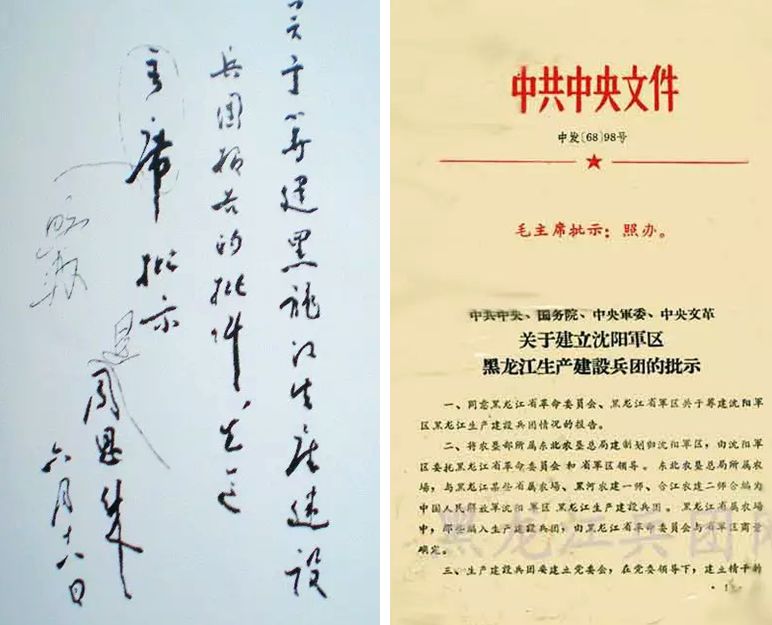 关于筹建黑龙江生产建设
兵团报告的批件先送
主席批示
周恩来
六月十八日
中共中央文件
中发〔68〕98号
毛主席批示：照办。
中共中央、国务院、中央軍委、中央文革
关于建立沈阳軍区
黑龙江生产建設兵团的批示
一、同意黑龙江省革命委员会、黑龙江省軍区关于筹建沈阳軍
区黑龙江生产建設兵团情况的报告。
二、将农垦部所属东北农垦总局建制划归沈阳軍区，由沈阳軍
区委托黑龙江省革命委员会和省軍区领导。东北农垦总局所属农
場，与黑龙江某些省属农場、黑河农建一师、合江农建二师合编为
中国人民解放軍沈阳軍区黑龙江生产建設兵团。黑龙江省属农場
中，那些编入生产建設兵团，由黑龙江省革命委员会与省軍区商量
确定。
三、生产建設兵团要建立党委会，在党委领导下，建立精干的
· 1 ·
黑龙江兵团网